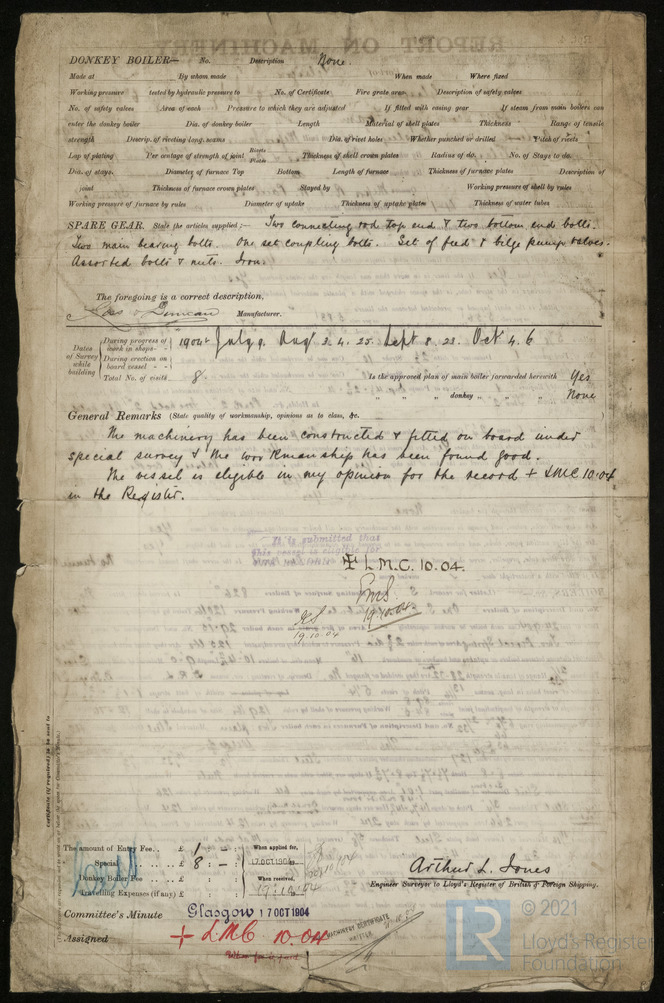 DONKEY BOILER— No. Description None
Made at By whom made When made Where fixed
Working pressure tested by hydraulic pressure to No. of Certificate Fire grate area Description of safety valves
No. of safety valves Area of each Pressure to which they are adjusted If fitted with easing gear If steam from main boilers can
enter the donkey boiler Dia. of donkey boiler Length Material of shell plates Thickness Range of tensile
strength Descrip. of riveting long. seams Dia. of rivet holes Whether punched or drilled Pitch of rivets
Lap of plating Per centage of strength of joint Rivets Plates Thickness of shell crown plates Radius of do. No. of Stays to do.
Dia. of stays. Diameter of furnace Top Bottom Length of furnace Thickness of furnace plates Description of
joint Thickness of furnace crown plates Stayed by Working pressure of shell by rules
Working pressure of furnace by rules Diameter of uptake Thickness of uptake plates Thickness of water tubes
SPARE GEAR. State the articles supplied:— Two connecting rod top end & two bottom end bolts.
Two main bearing bolts. One set coupling bolts. Set of feed & bilge pump valves.
Assorted bolts & nuts. Iron.
The foregoing is a correct description,
Ross & Duncan Manufacturer.
Dates of Survey while building
During progress of work in shops- - 1904 July 9. Aug 3. 4. 25. Sept 8. 23. Oct 4. 6
During erection on board vessel - -
Total No. of visits 8. Is the approved plan of main boiler forwarded herewith Yes
" " " donkey " " " None
General Remarks (State quality of workmanship, opinions as to class, &c.
The machinery has been constructed & fitted on board under
special survey & the workmanship has been found good.
The vessel is eligible in my opinion for the record + LMC 10.04
in the Register.
It is submitted that
this vessel is eligible for
+ L.M.C. 10.04.
19.10.04
19.10.04
Certificate (if required) to be sent to
The amount of Entry Fee.. £ 1 : - : When applied for,
Special .. .. £ 8 : - : 17 OCT 1904
Donkey Boiler Fee .. .. £ : : When received,
Travelling Expenses (if any) £ : : 19.10.04
Arthur L. Jones
Engineer Surveyor to Lloyd's Register of British & Foreign Shipping.
Committee's Minute Glasgow 17 OCT 1904
Assigned + LMC 10.04
MACHINERY CERTIFICATE
WRITTEN
LR
© 2021
Lloyd's Register
Foundation